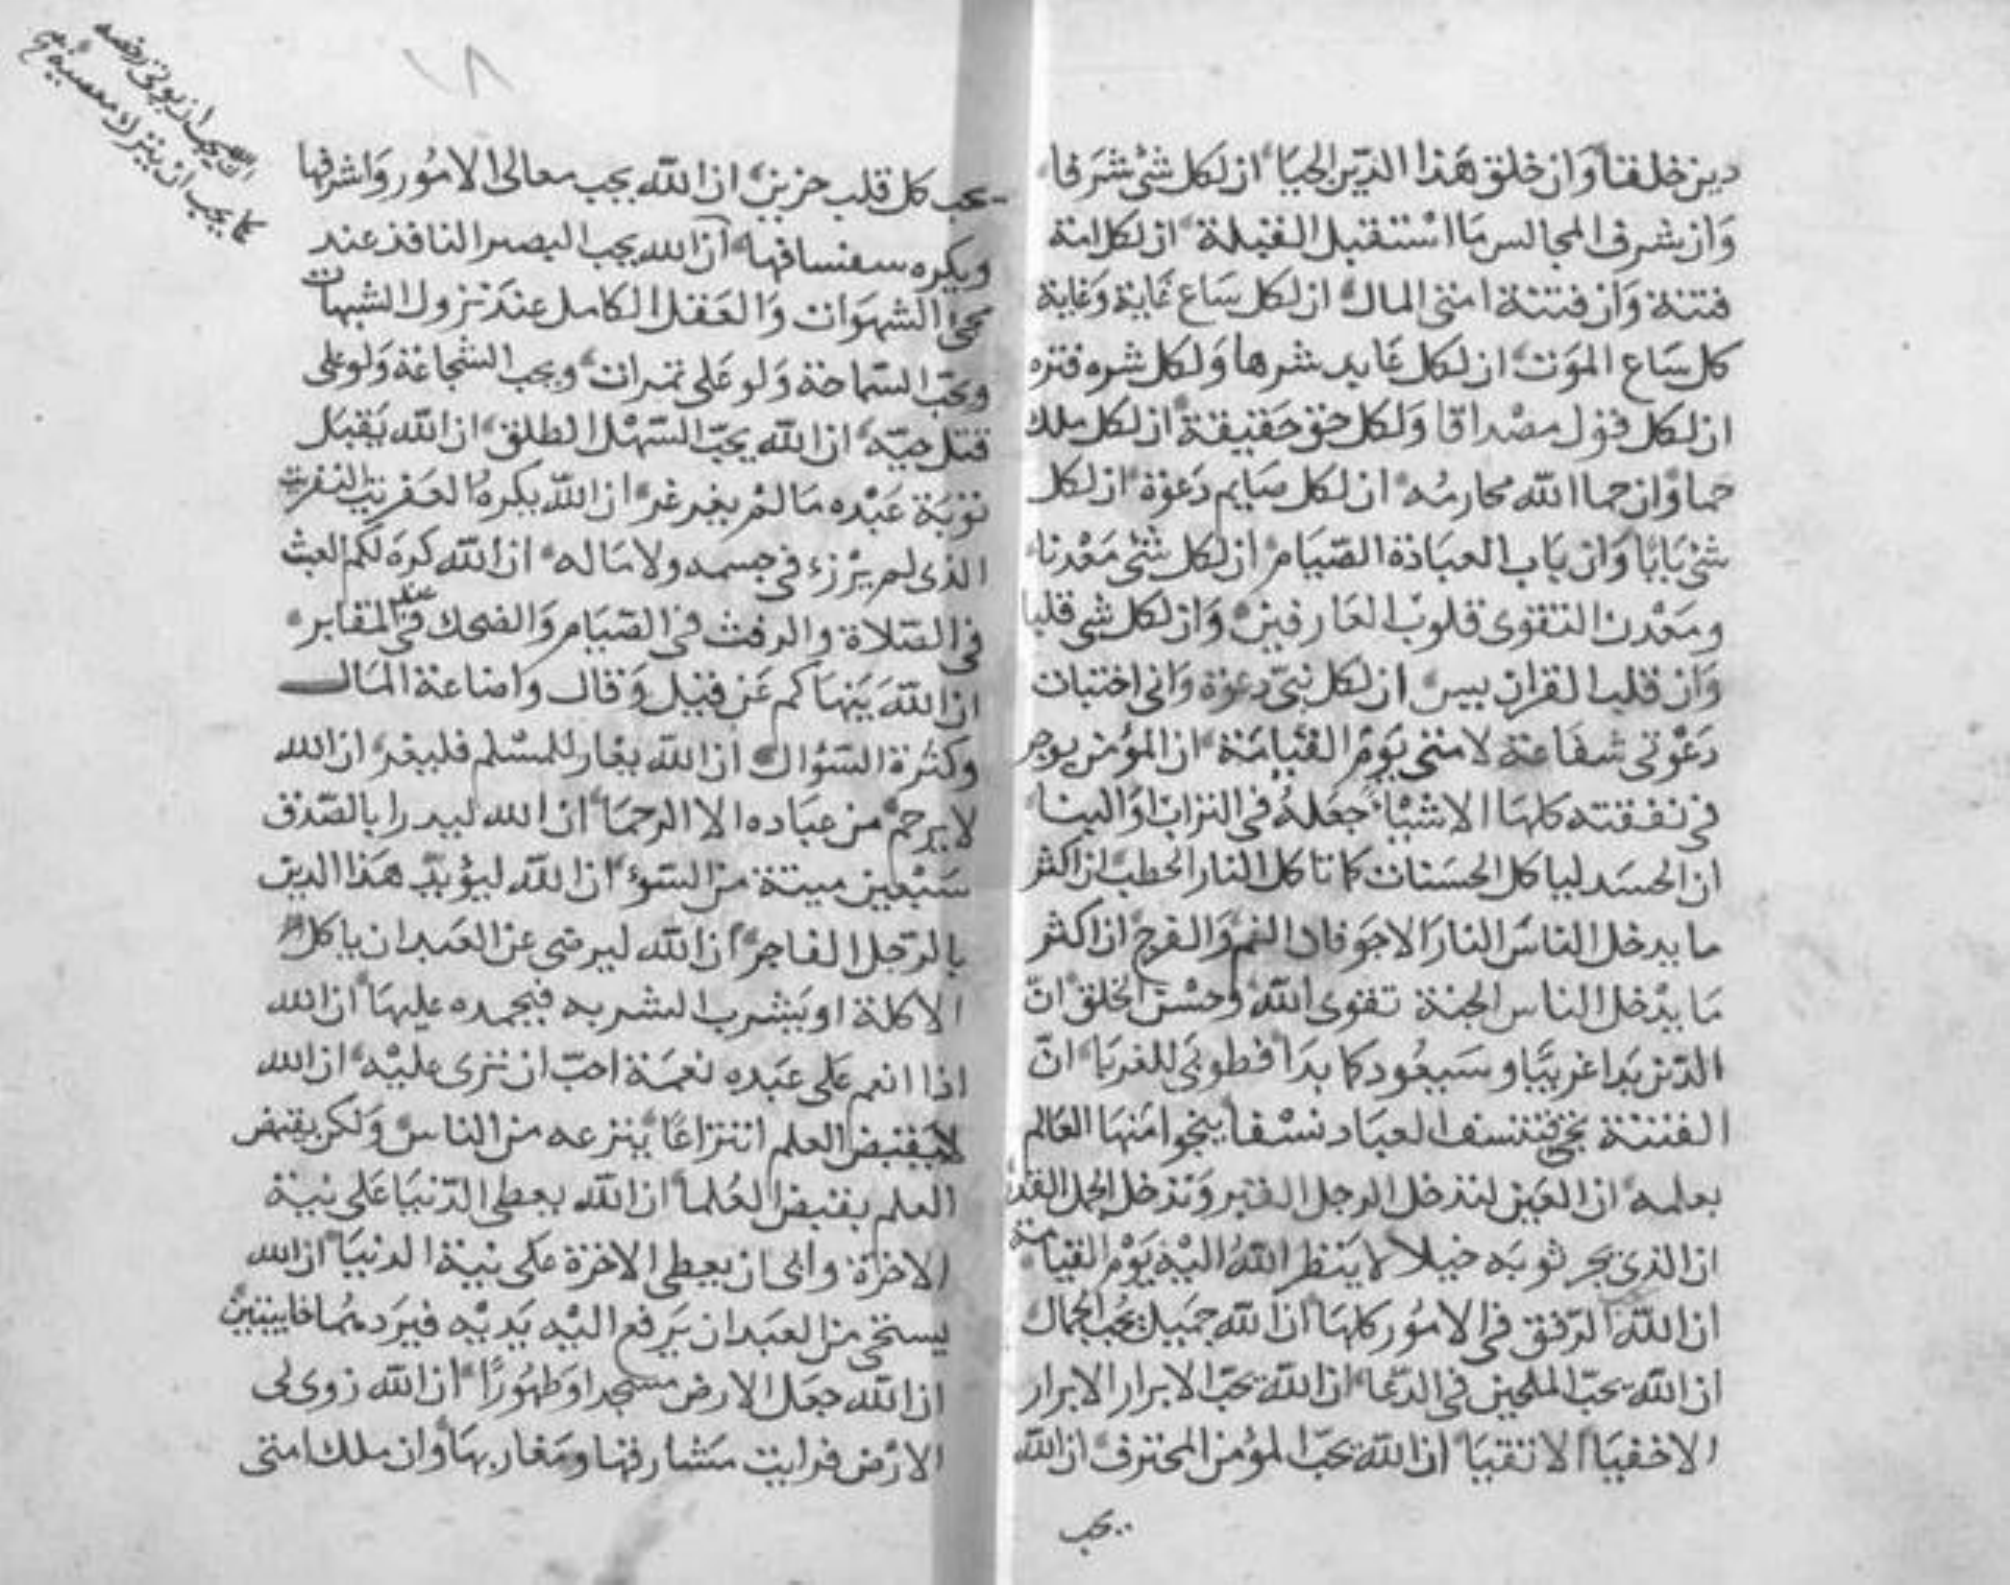 دين خلقا وان خلق هذا الدين الحيا ان لكل شئ شرفا
وان شرف المجالس ما استقبل القبلة ان لكل امة
فتنة وان فتنة امتى المال ان لكل ساع غاية وغاية
كل ساع الموت ان لكل عابد شرها ولكل شره فتره
ان لكل قول مصداقا ولكل حق حقيقة ان لكل ملك
حما وان حما الله محارمه ان لكل صايم دعوة ان لكل
شئ بابا وان باب العبادة الصيام ان لكل شئ معدنا
ومعدن التقوى قلوب العارفين وان لكل شى قلبا
وان قلب القران يس ان لكل نبى دعوة وانى اختبات
دعوتى شفاعة لامتى يوم القيامة ان المؤمن يوجر
فى نفقته كلها الا شيا جعله فى التراب او البنا
ان الحسد ليا كل الحسنات كما تا كل النار الحطب ان اكثر
ما يدخل الناس النار الاجوفان الفم والفرج ان اكثر
ما يدخل الناس الجنة تقوى الله وحسن الخلق ان
الدين بدا غريبا وسيعود كما بدا فطوبى للغربا ان
الفتنة تجى فتنسف العباد نسفا ينجوا منها العالم
بعلمه ان العين لتدخل الرجل القبر وتدخل الجمل القدر
ان الذى يجر ثوبه خيلا لا ينظر الله اليه يوم القيامة
ان الله الرفق فى الامور كلها ان الله جميل يحب الجمال
ان الله يحب الملحين فى الدعا ان الله يحب الابرار الابرار
الاخفيا الاتقيا ان الله يحب المؤمن المحترف ان الله
يحب
١٨
ان الله يحب ان يوتى رخصه
كما يحب ان يترك معصيته صح
يحب كل قلب حزين ان الله يحب معالى الامور واشرافها
ويكره سفسافها ان الله يحب البصر النافذ عند
مجى الشهوات والعقل الكامل عند نزول الشبهات
ويحب السماحة ولو على تمرات ويحب الشجاعة ولو على
قتل حية ان الله يحب السهل الطلق ان الله يقبل
توبة عبده ما لم يغرغر ان الله يكره العفريت النفريت
الذى لم يرزء فى جسمه ولا ماله ان الله كره لكم العبث
فى الصلاة والرفث فى الصيام والضحك فى عند المقابر
ان الله ينهاكم عن قيل وقال واضاعة المال
وكثرة السؤال ان الله يغار للمسلم فليغر ان الله
لا يرحم من عباده الا الرحما ان الله ليدرا بالصدق
سبعين ميتة من السوء ان الله ليؤيد هذا الدين
بالرجل الفاجر ان الله ليرضى عن العبد ان ياكل
الاكلة او يشرب الشربه فيحمده عليها ان الله
اذا انعم على عبده نعمة احب ان ترى عليه ان الله
لا يقبض العلم انتزاعا ينزعه من الناس ولكن يقبض
العلم بقبض العلما ان الله يعطى الدنيا على نية
الاخرة وابى ان يعطى الاخرة على نية الدنيا ان الله
ليستحى من العبد ان يرفع اليه يديه فيردهما خايبتين
ان الله جعل الارض مسجدا وطهورا ان الله زوى لى
الارض فرايت مشارقها ومغاربها وان ملك امتى